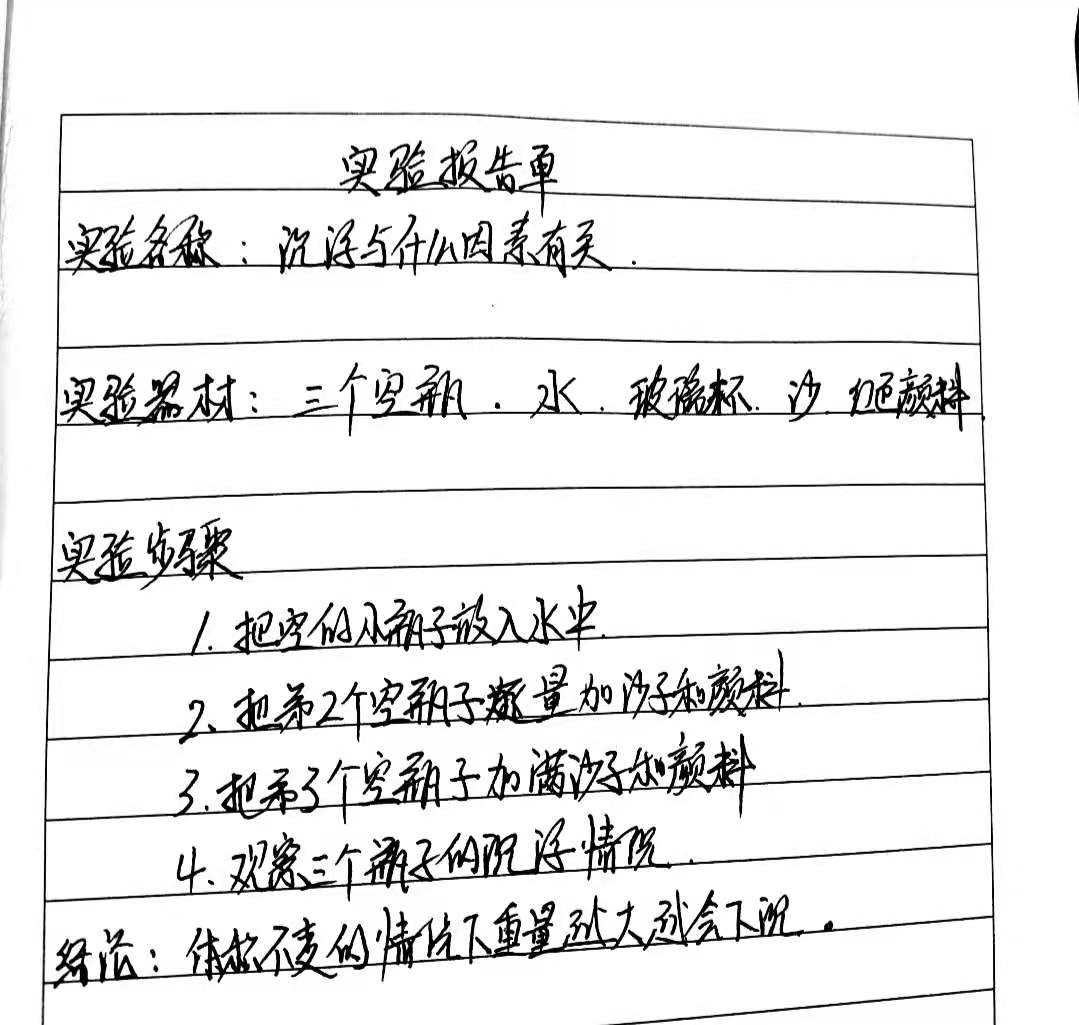 实验报告单
实验名称：沉浮与什么因素有关.
实验器材：三个空瓶.水.玻璃杯.沙.红色颜料.
实验步骤
1.把空的小瓶子放入水中.
2、把第2个空瓶子适量加沙子和颜料.
3.把第3个空瓶子加满沙子和颜料
4、观察三个瓶子的沉浮情况.
结论：体积不变的情况下重量越大越会下沉。